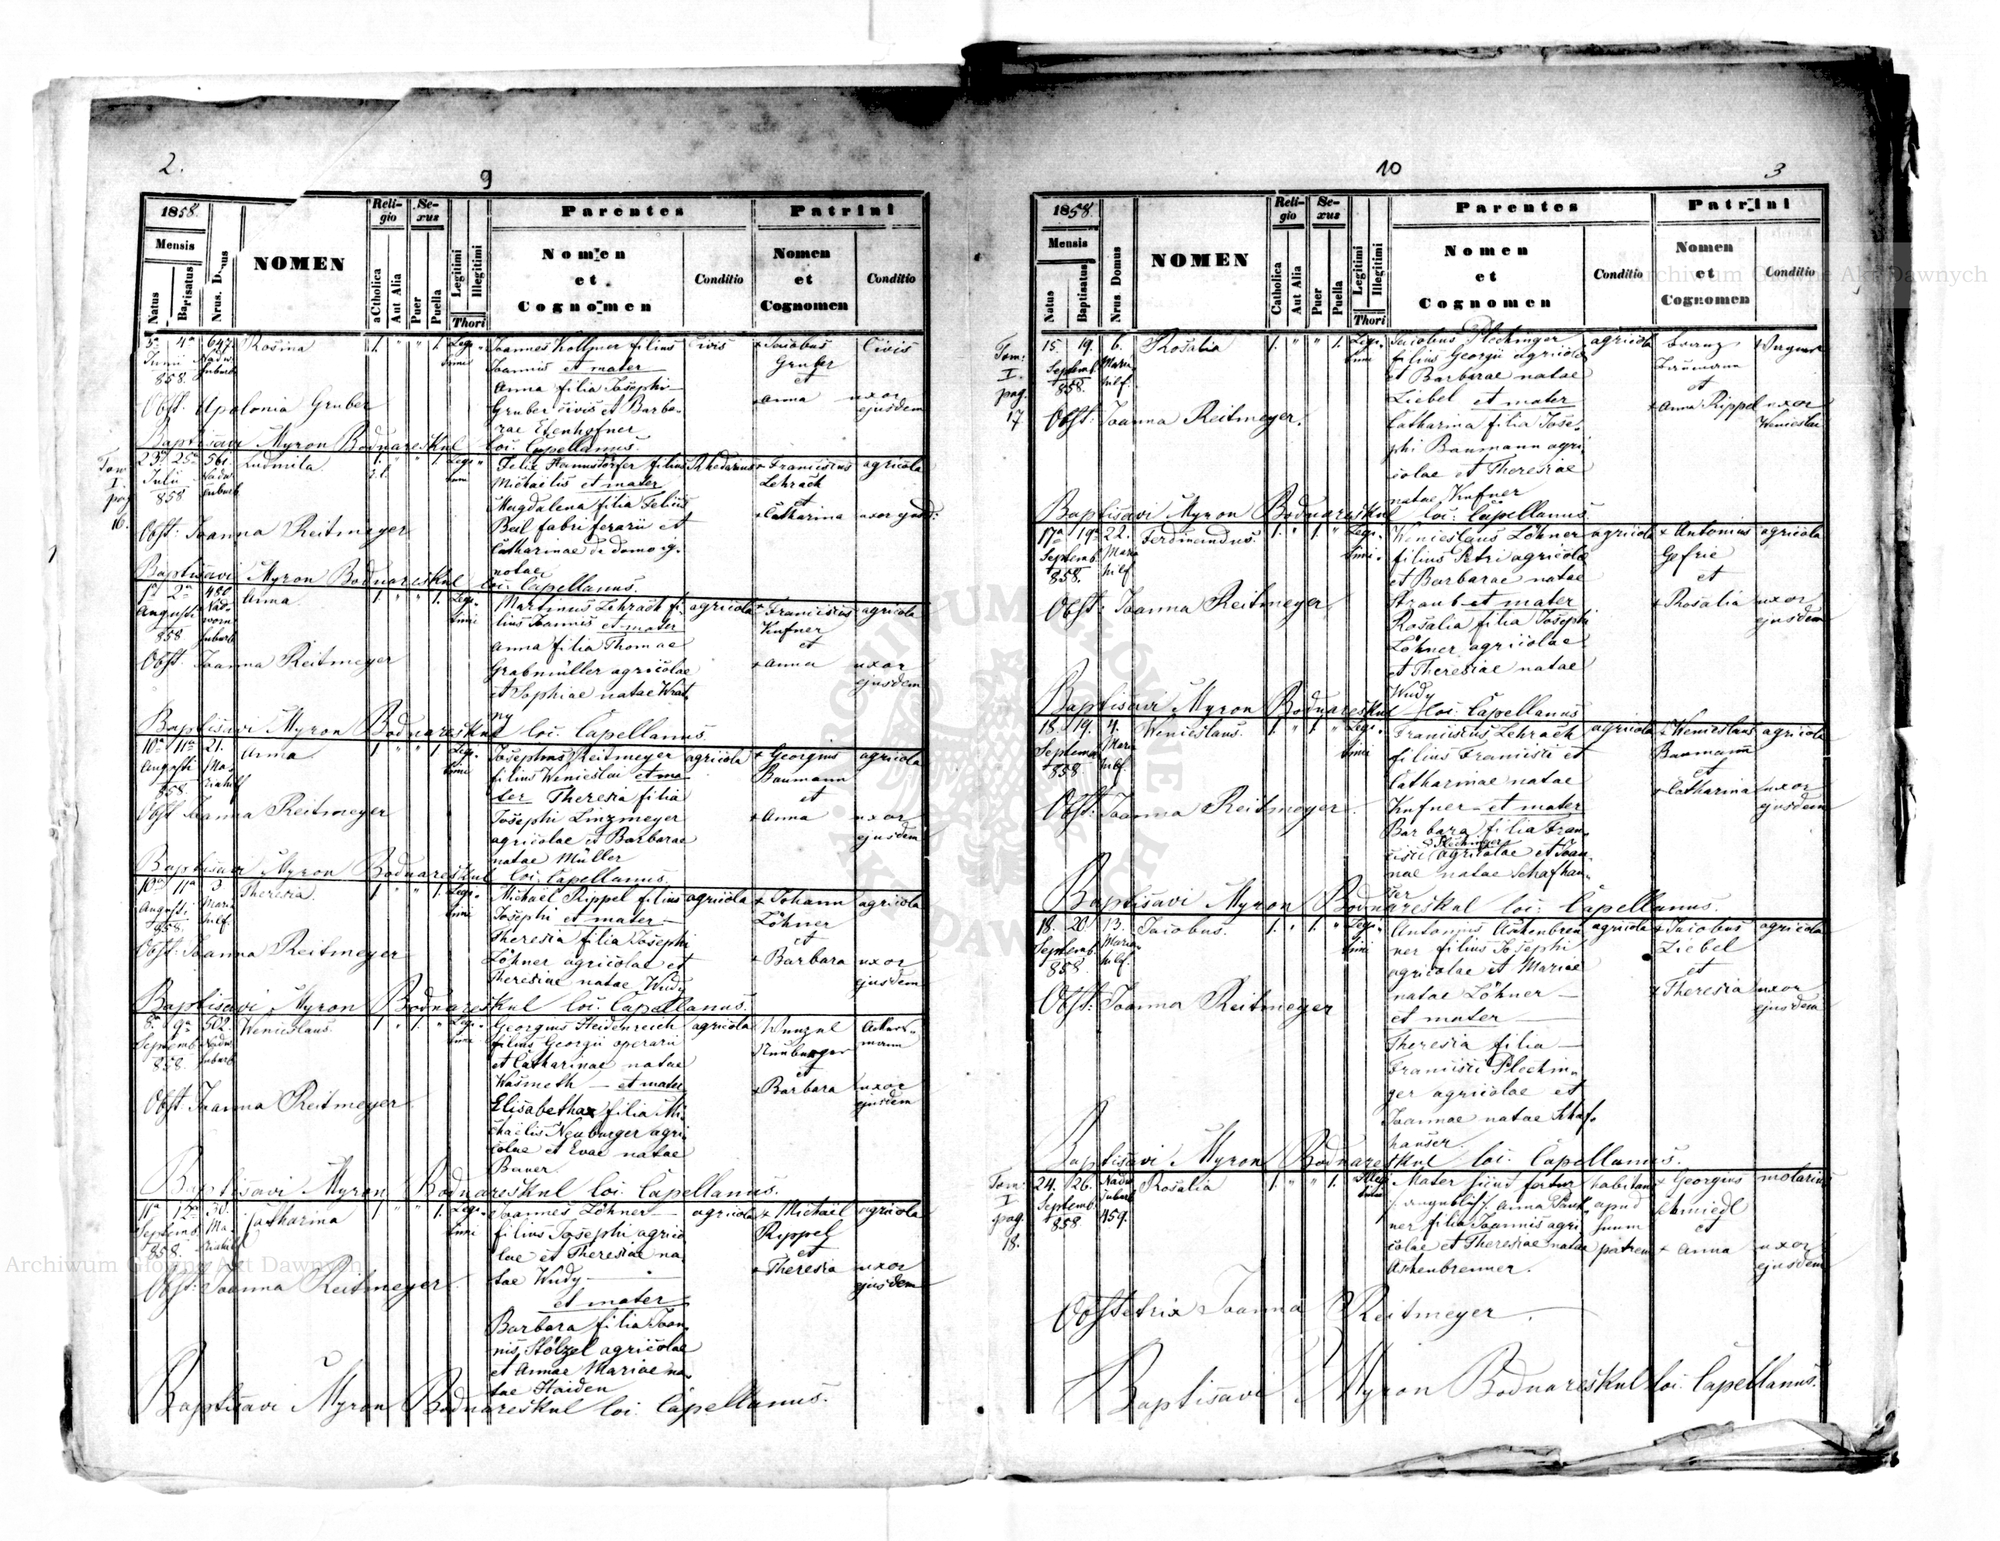 2.
9
1858.
Mensis
Natus
Baptisatus
Nrus. Domus
NOMEN
Religio
Catholica
Aut Alia
Sexus
Puer
Puella
Legitimi
Illegitimi
Thori
Parentes
Nomen
et
Cognomen
Conditio
Patrini
Nomen
et
Cognomen
Conditio
3a 4a 647. Rosina 1. " " 1. Legi- "
Junii
858.
Joannes filius Civis
Joannis et mater
Anna filia Josephi
Gruber civis et Barba-
rae
+ Jacobus Civis
Gruber
et
+ Anna uxor
ejusdem
Obst. Apolonia Gruber
Baptisavi Myron Bodnareskul loci Capellanus.
Tom
I.
pag
16.
23a 25a 561 Ludmila 1. " " 1. Legi- "
Julii
858
Felix filius
Michaelis et mater
Magdalena filia Felicis
Beil fabri ferarii et
Catharinae de domo ig-
notae
+ Franciscus agricola
Lehrach
et
+ Catharina uxor ejusd:
Obst: Joanna Reitmeyer
Baptisavi Myron Bodnareskul loci Capellanus.
1a 2a 480 Anna 1 " " 1. Legi- "
Augusti
858
Martinus Lehrach fi- agricola
lius Joannis et mater
Anna filia Thomae
Grabmüller agricolae
et Sophiae natae Wrat-
ny
+ Franciscus agricola
Kufner
et
+ Anna uxor
ejusdem
Obst. Joanna Reitmeyer
Baptisavi Myron Bodnareskul loci Capellanus.
10a 11a 21. Anna 1 " " 1 Legi- "
Augusti Ma-
858. riahilf
Josephus Reitmeyer agricola
filius Wenceslai et ma-
ter Theresia filia
Josephi Linzmeyer
agricolae et Barbarae
natae Müller
+ Georgius agricola
Baumann
et
+ Anna uxor
ejusdem
Obst Joanna Reitmeyer
Baptisavi Myron Bodnareskul loci Capellanus.
10a 11a 3 Theresia. 1 " " 1. Legi- "
Augusti Maria
858. hilf.
Michael Rippel filius agricola
Josephi et mater —
Theresia filia Josephi
Löhner agricolae et
Theresiae natae Wudy
+ Johann agricola
Löhner
et
+ Barbara uxor
ejusdem
Obst: Joanna Reitmeyer
Baptisavi Myron Bodnareskul loci Capellanus.
8a 9a 502. Wenceslaus. 1 " 1. " Legi- "
Septemb.
858.
Georgius Heidenreich agricola
filius Georgii operarii
et Catharinae natae
Wasmeth — et mater
Elisabetha filia Mi-
chaelis Neuburger agri-
colae et Evae natae
Bauer
Wenzel Ackers-
Neuburger mann
et
+ Barbara uxor
ejusdem
Obst Joanna Reitmeyer
Baptisavi Myron Bodnareskul loci Capellanus.
11a 12a 30. Catharina 1 " " 1. Legi- "
Septemb. Ma-
858. riahilf
Joannes Löhner — agricola
filius Josephi agrico-
lae et Theresiae na-
tae Wudy —
et mater
Barbara filia Joan-
nis Stölzel agricolae
et Annae Mariae na-
tae Haiden
+ Michael agricola
Rippel
et
+ Theresia uxor
ejusdem
Obst: Joanna Reitmeyer.
Baptisavi Myron Bodnareskul loci Capellanus.
10
3
1858.
Mensis
Natus
Baptisatus
Nrus. Domus
NOMEN
Religio
Catholica
Aut Alia
Sexus
Puer
Puella
Legitimi
Illegitimi
Thori
Parentes
Nomen
et
Cognomen
Conditio
Patrini
Nomen
et
Cognomen
Conditio
Tom:
I.
pag.
17
15. 19. 6. Rosalia 1. " " 1. Legi- "
Septemb. Maria
858. hilf.
Jacobus Plechinger agricola
filius Georgii agricolae
et Barbarae natae
Liebel et mater
Catharina filia Jose-
phi Baumann agri-
colae et Theresiae
natae Kufner
Franz
Baumann
et
+ Anna Rippel uxor
Wenceslai
Obst: Joanna Reitmeyer.
Baptisavi Myron Bodnareskul loci Capellanus.
17a 19a 22. Ferdinandus. 1. " 1. " Legi- "
Septemb. Maria
858. hilf
Wenceslaus Löhner agricola
filius Petri agricolae
et Barbarae natae
Straub et mater
Rosalia filia Josephi
Löhner agricolae
et Theresiae natae
Wudy
+ Antonius agricola
Gefrie
et
+ Rosalia uxor
ejusdem
Obst: Joanna Reitmeyer
Baptisavi Myron Bodnareskul loci Capellanus
18. 19. 4. Wenceslaus. 1. " 1. " Legi- "
Septemb. Maria
858 hilf.
Franciscus Lehrach agricola
filius Francisci et
Catharinae natae
Kufner — et mater
Barbara filia Fran-
Plechinger
cisci agricolae et Joan-
nae natae Schafhau-
ser
+ Wenceslaus agricola
Baumann
et
+ Catharina uxor
ejusdem
Obst: Joanna Reitmeyer.
Baptisavi Myron Bodnareskul loci Capellanus.
18. 20 13. Jacobus. 1. " 1. " Legi- "
Septemb. Maria
858. hilf.
Antonius Aschenbren- agricola
ner filius Josephi
agricolae et Mariae
natae Löhner —
et mater
Theresia filia —
Francisci Plechin-
ger agricolae et
Joannae natae Schaf-
hauser.
+ Jacobus agricola
Liebel
et
+ Theresia uxor
ejusdem
Obst: Joanna Reitmeyer
Baptisavi Myron Bodnareskul loci Capellanus.
Tom:
I
pag.
18.
24. 26. Rosalia 1. " " 1.
Septemb.
858 459.
Mater habitans
Anna apud
ner filia Joannis agri- suum
colae et Theresiae natae patrem
Aschenbrenner.
+ Georgius molarius
Schmiedl
et
+ Anna uxor
ejusdem
Obstetrix Joanna Reitmeyer.
Baptisavi Myron Bodnareskul loci Capellanus.
Archiwum Główne Akt Dawnych
Archiwum Główne Akt Dawnych
ARCHIWUM GŁÓWNE AKT DAWNYCH